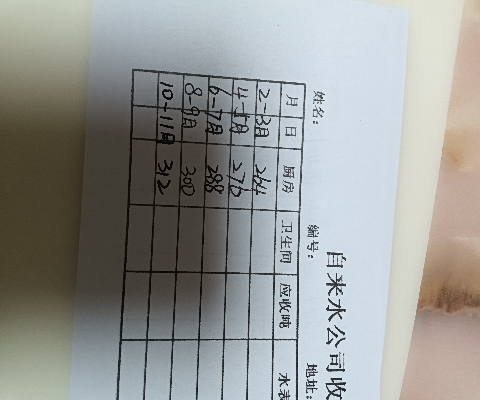 自来水公司收
姓名： 编号： 地址：
月 日 厨房 卫生间 应收吨 水表
2-3月 264
4-5月 276
6-7月 288
8-9月 300
10-11月 312